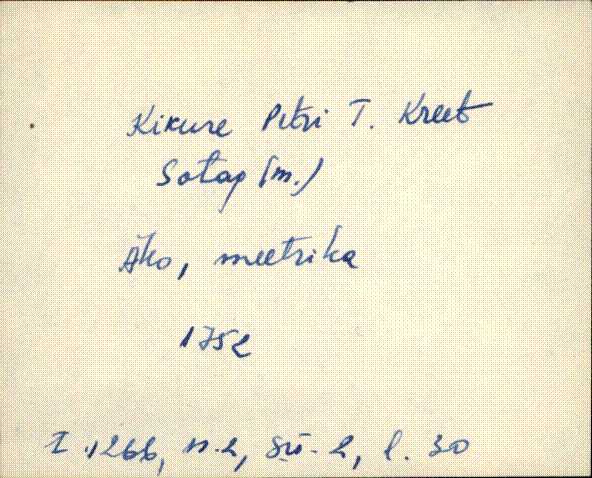 Kikure Petri T. Kreet
Sotag (m.)
Äko, meetrika
1752
I.1266, n.2, sü. 2, l. 30